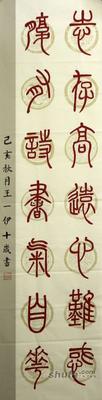 志存高遠心難
腹有詩書氣自華
己亥秋月王一伊十歲書